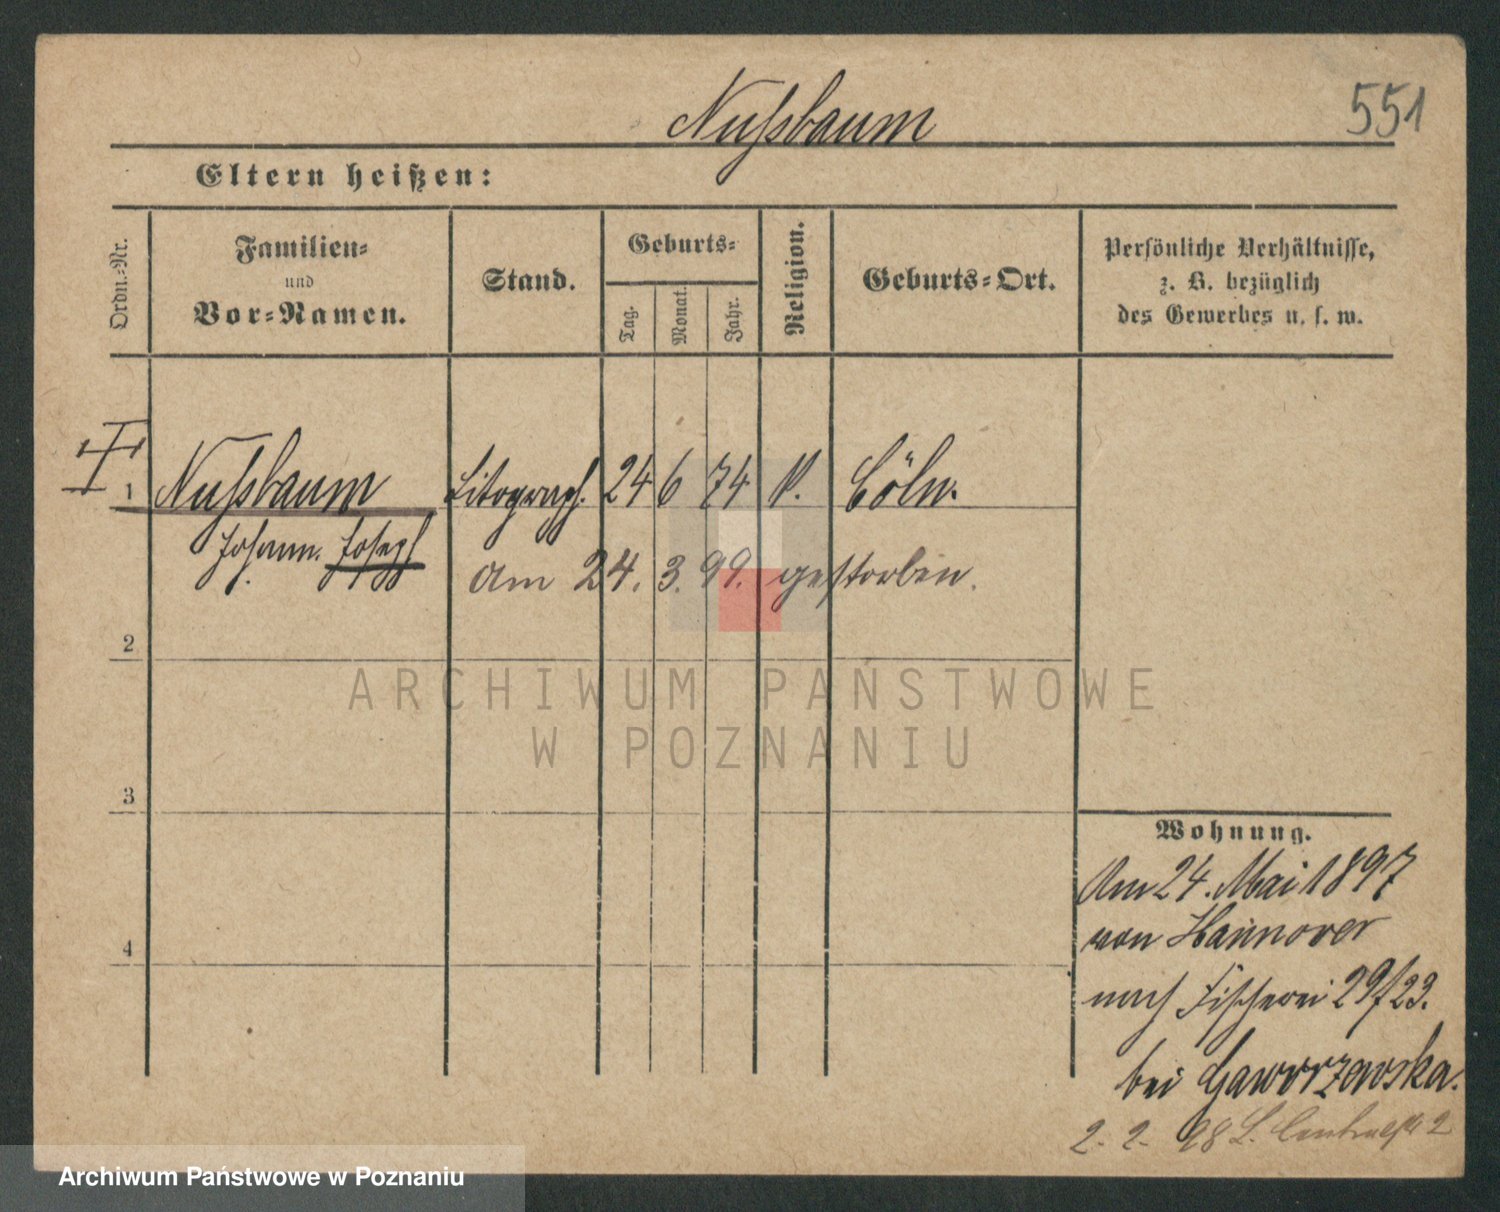 Nußbaum
551
Eltern heißen:
Ordn.-Nr.
Familien-
und
Vor-Namen.
Stand.
Geburts-
Tag.
Monat.
Jahr.
Religion.
Geburts-Ort.
Persönliche Verhältnisse,
z. B. bezüglich
des Gewerbes u. s. w.
1 Nußbaum Litograph. 24 6 74 Cöln.
Johann. Joseph
am 24. 3. 99. gestorben.
2
3
4
Wohnung.
Am 24. Mai 1897
von Hannover
nach Fischerei 29/23.
bei Gaworzewska.
2. 2. 98
ARCHIWUM PAŃSTWOWE
W POZNANIU
Archiwum Państwowe w Poznaniu